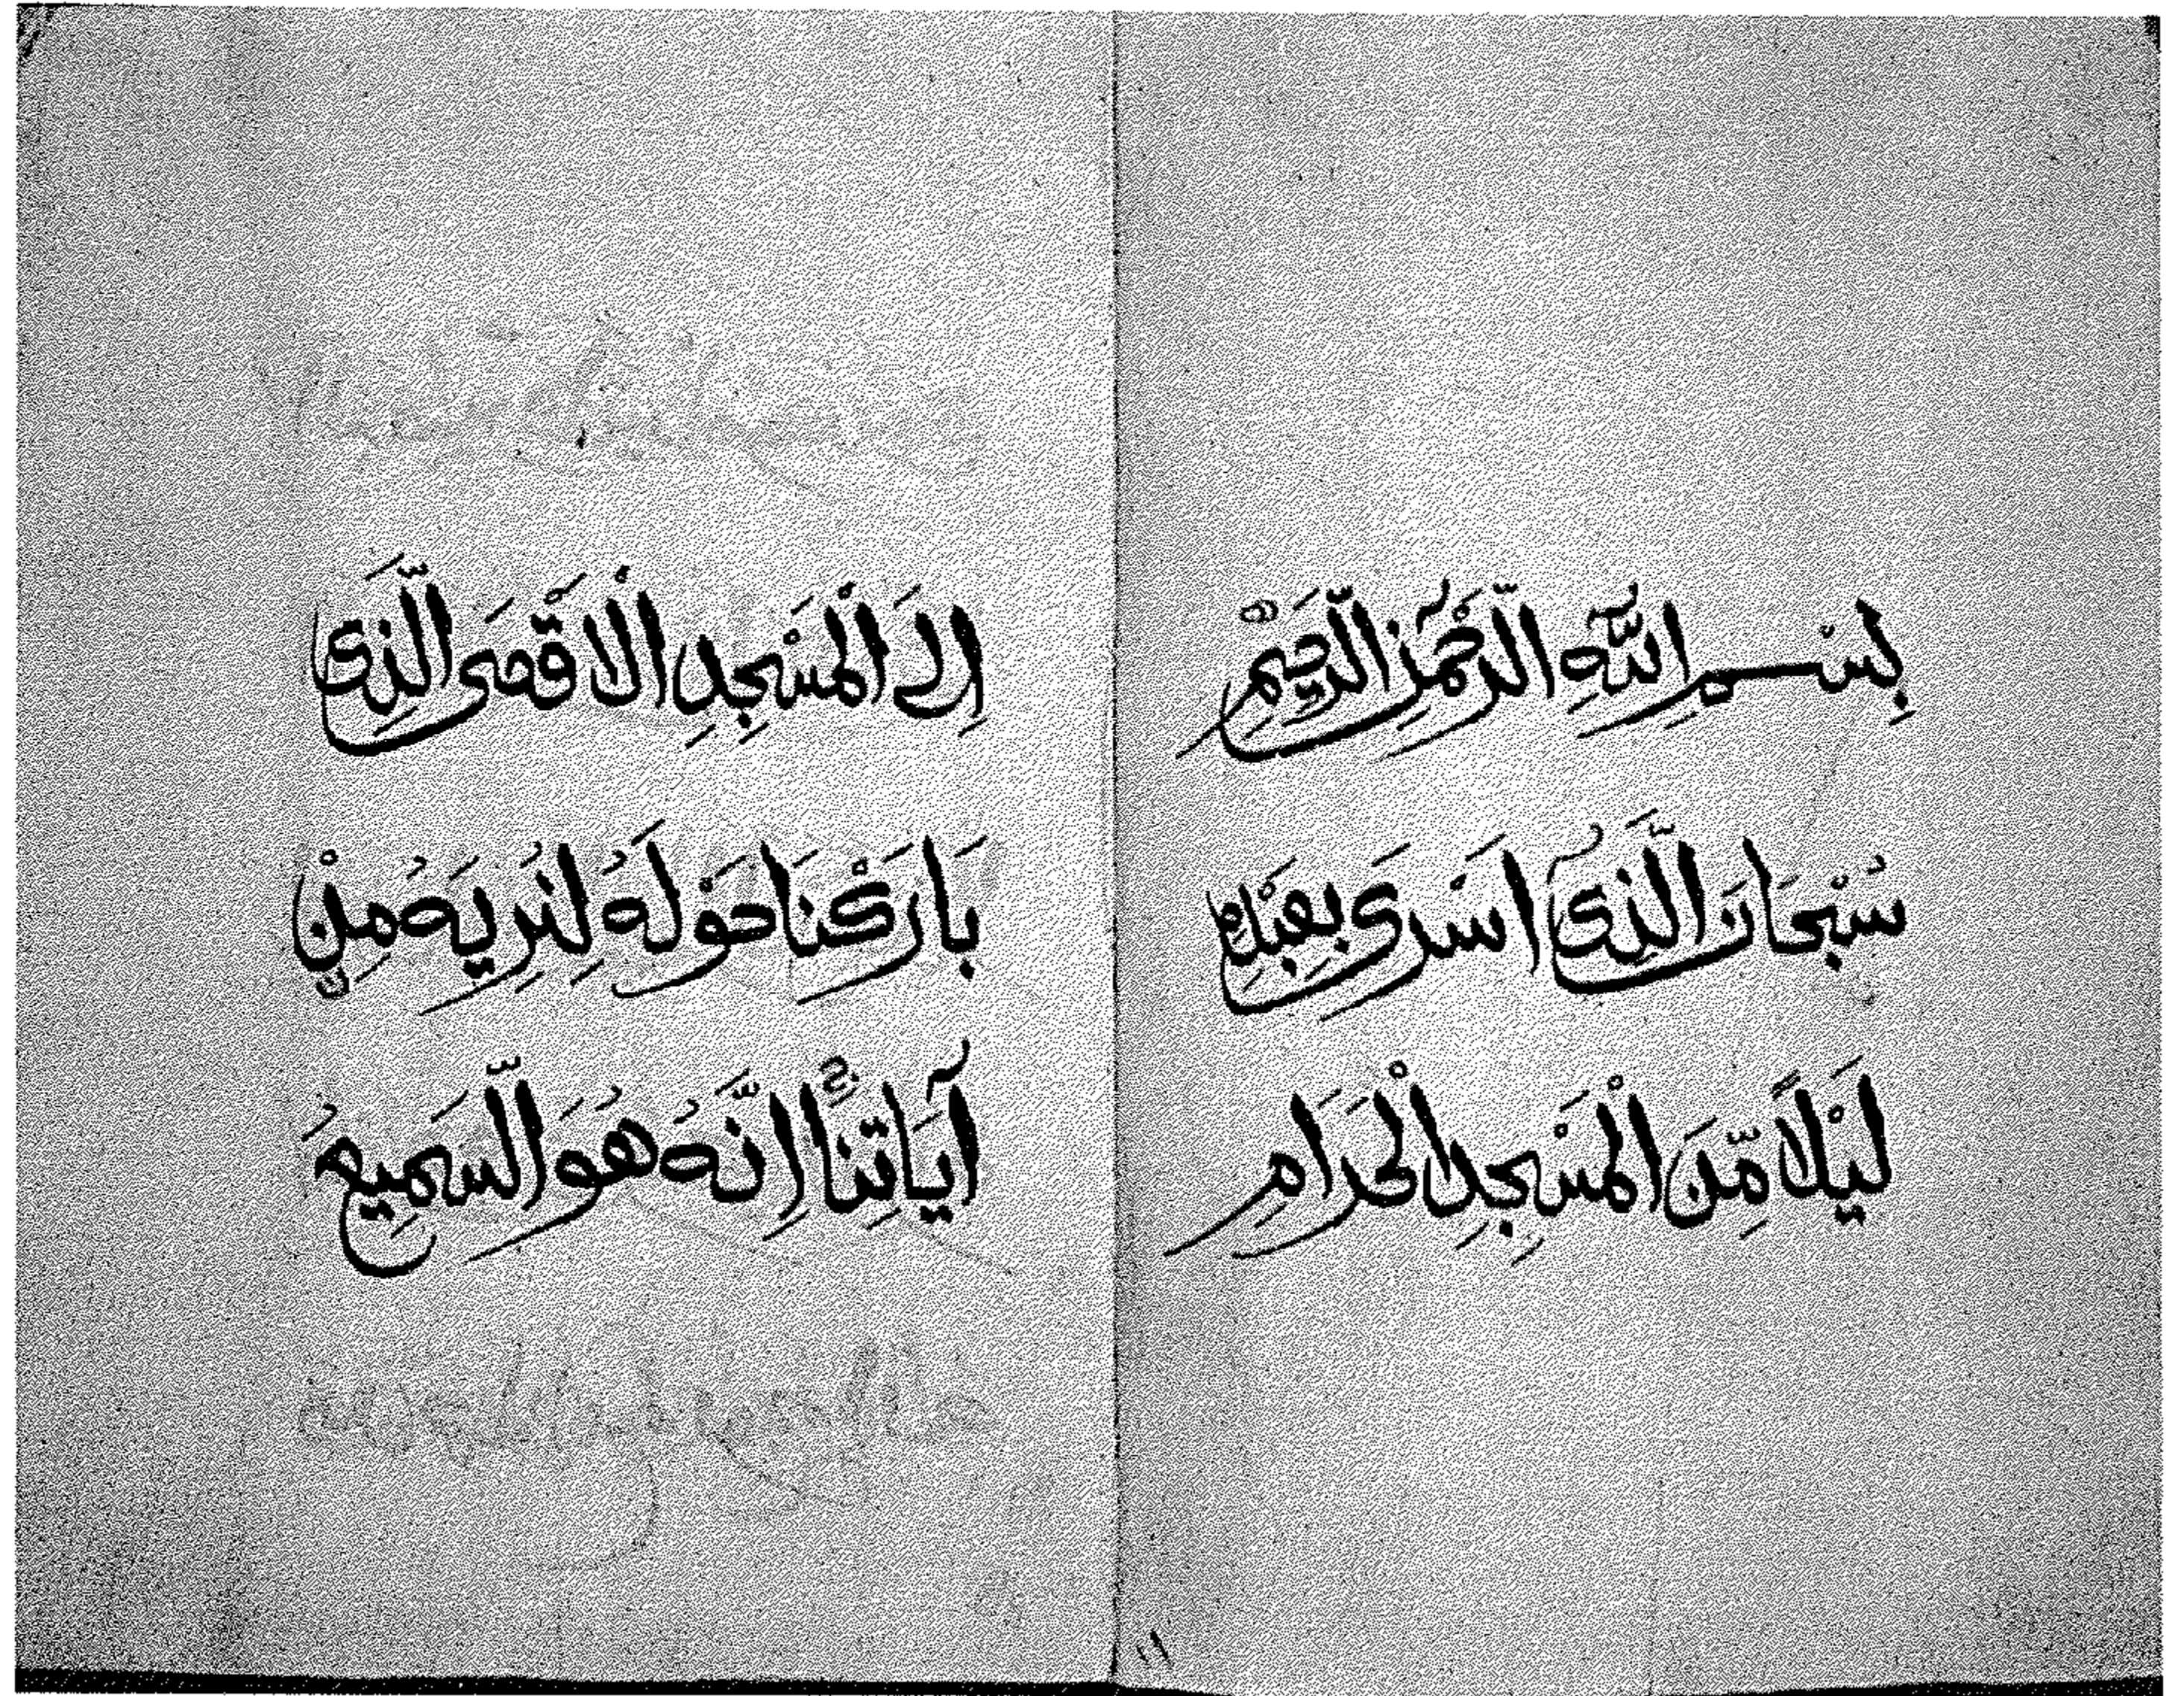 بِسْمِ اللَّهِ الرَّحْمٰنِ الرَّحِيمِ
سُبْحَانَ الَّذِى اَسْرَى بِعَبْدِهِ
لَيْلًا مِّنَ الْمَسْجِدِ الْحَرَامِ
اِلَى الْمَسْجِدِ الْاَقْصَى الَّذِى
بَارَكْنَا حَوْلَهُ لِنُرِيَهُ مِنْ
آيَاتِنَا اِنَّهُ هُوَ السَّمِيعُ
١١